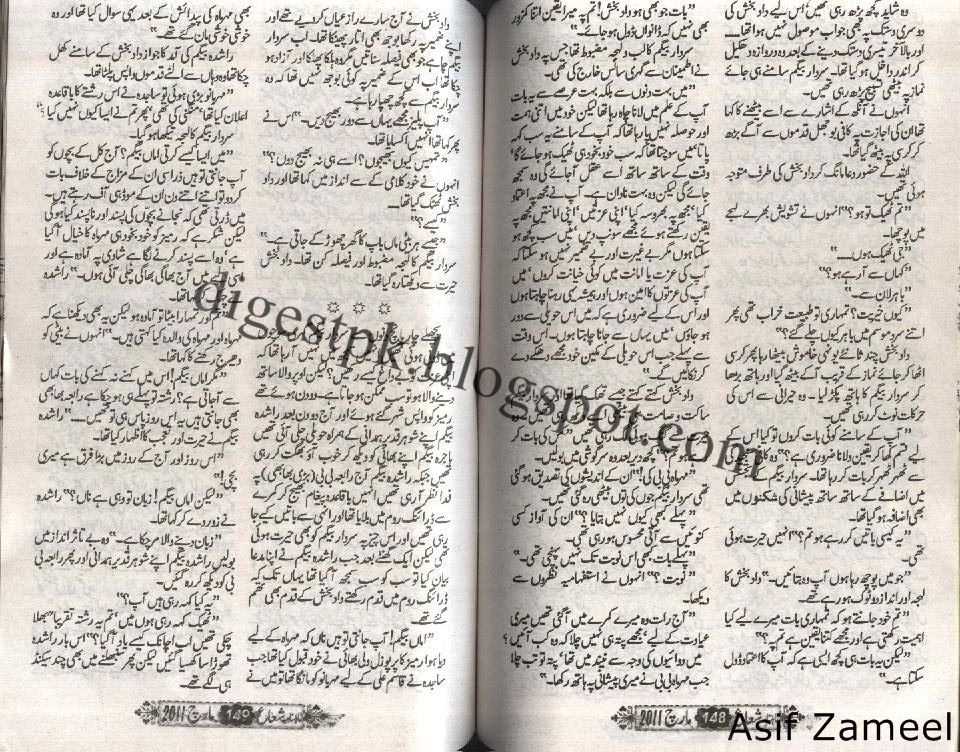 وہ شاید کچھ پڑھ رہی تھیں، اس لیے داد بخش کی
دوسری دستک پہ بھی جواب موصول نہیں ہوا تھا۔
اور بالآخر تیسری دستک دینے کے بعد وہ دروازہ دھکیل
کر اندر داخل ہو گیا تھا۔ سردار بیگم سامنے ہی جائے
نماز پہ بیٹھی تسبیح پڑھ رہی تھیں۔
انہوں نے آنکھ کے اشارے سے اسے بیٹھنے کا کہا
تھا ان کی اجازت پہ کافی بوجھل قدموں سے آگے بڑھ
کر کرسی پہ بیٹھ گیا تھا۔
اللہ کے حضور دعا مانگ کر داد بخش کی طرف متوجہ
ہوئی تھیں۔
”تم ٹھیک تو ہو؟“ انہوں نے تشویش بھرے لہجے
میں پوچھا۔
”جی ٹھیک ہوں۔۔۔“
”کہاں سے آ رہے ہو؟“
”باہر لان سے۔“
”کیوں خیریت؟ تمہاری تو طبیعت خراب تھی پھر
اتنے سرد موسم میں باہر کیوں چلے گئے؟“
داد بخش چند ثانیے یونہی خاموش بیٹھا رہا پھر کرسی
اٹھا کر جائے نماز کے قریب آ کے بیٹھ گیا اور ہاتھ بڑھا
کر سردار بیگم کا ہاتھ پکڑ لیا۔ وہ حیرانی سے اس کی
حرکات نوٹ کر رہی تھیں۔
”آپ کے سامنے کوئی بات کروں تو کیا اس کے
لیے قسم کھا کر یقین دلانا ضروری ہے؟“
سے ٹھہر ٹھہر کر بات کر رہا تھا۔ سردار بیگم کے
میں اضافے کے ساتھ ساتھ پیشانی کی شکنوں میں
بھی اضافہ ہو گیا تھا۔
”یہ کیسی باتیں کر رہے ہو تم؟“ انہیں حیرت ہوئی
تھی۔
”جو میں پوچھ رہا ہوں آپ وہ بتائیں۔“ داد بخش کا
لہجہ اور انداز دو ٹوک ہو رہے تھے۔
”تم خود جانتے ہو کہ تمہاری بات میرے لیے کیا
اہمیت رکھتی ہے اور مجھے کتنا یقین ہے تم پہ؟“
”لیکن یہ بات ہی کچھ ایسی ہے کہ آپ کا اعتماد ڈول
سکتا ہے۔“
”بات جو بھی ہو داد بخش! تم پہ میرا یقین اتنا کمزور
نہیں ہے کہ ڈانواں ڈول ہو جائے۔“
سردار بیگم کا لب و لہجہ مضبوط تھا جس پہ داد بخش
نے اطمینان سے گہری سانس خارج کی تھی۔
”میں بہت دنوں سے بلکہ بہت عرصے سے یہ بات
آپ کے علم میں لانا چاہ رہا تھا۔ لیکن خود میں اتنی ہمت
اور حوصلہ نہیں پا رہا تھا کہ آپ کے سامنے یہ سب کہہ
پاتا میں سوچتا تھا کہ سب خود بخود ہی ٹھیک ہو جائے گا
وقت کے ساتھ ساتھ اسے عقل آ جائے گی وہ سمجھ
جائے گی لیکن وہ بہت نادان ہے۔ آپ نے مجھ پہ اعتماد
کیا، مجھ پہ بھروسہ کیا، اپنی عزتیں، اپنی امانتیں مجھ پہ
یقین رکھتے ہوئے مجھے سونپ دیں، میں سب کچھ
ہو سکتا ہوں مگر بے غیرت اور بے ضمیر نہیں ہو سکتا کہ
آپ کی عزت یا امانت میں کوئی خیانت کروں، میں
آپ کی عزتوں کا امین ہوں اور ہمیشہ یہی رہنا چاہتا ہوں
اور اس کے لیے ضروری ہے کہ میں اس حویلی سے دور
ہو جاؤں، میں یہاں سے جانا چاہتا ہوں۔ اس وقت
سے پہلے جب اس حویلی کے مکین خود مجھے دھکے دے
کر نکالیں گے۔“
داد بخش کہتے کہتے جیسے تھک گیا تھا اور
”پہلے کبھی کیوں نہیں بتایا؟“ ان کی آواز کسی
کنوئیں سے آتی محسوس ہو رہی تھی۔
”پہلے بات کبھی اس نوبت تک نہیں پہنچی تھی۔“
”نوبت؟“ انہوں نے استفہامیہ نظروں سے
دیکھا۔
”آج رات وہ میرے کمرے میں آ گئی تھیں میری
عیادت کے لیے، مجھے پتہ ہی نہیں چلا کہ وہ کب آئیں؟
میں دوائیوں کی وجہ سے نیند میں تھا، پتہ تو تب چلا
جب مہرماہ بی بی نے میری پیشانی پہ ہاتھ رکھا۔“
ماہنامہ شعاع 148 مارچ 2011
داد بخش نے آج سارے راز عیاں کر دیے تھے اور
اپنے ضمیر پہ رکھا بوجھ بھی اتار پھینکا تھا۔ اب سردار
بیگم چاہے جو بھی فیصلہ سناتیں مگر وہ ہلکا پھلکا اور آزاد ہو
چکا تھا اب اس کے ضمیر پہ کوئی بوجھ نہیں تھا کہ وہ
سردار بیگم سے کچھ چھپا رہا ہے۔
”آپ پلیز مجھے یہاں سے دور بھیج دیں۔“ اس نے
پھر کہا تھا انہیں اکسایا تھا۔
”تمہیں کیوں بھیجوں؟ اسے ہی نہ بھیج دوں؟“
انہوں نے خود کلامی کے سے انداز میں کہا تھا اور داد
بخش ٹھٹک گیا تھا۔
”کیسے؟“
”جیسے ہر بیٹی ماں باپ کا گھر چھوڑ کے جاتی ہے۔“
سردار بیگم کا لہجہ مضبوط اور فیصلہ کن تھا۔ داد بخش
حیرت سے دیکھتا رہ گیا تھا۔
بیگم اپنے شوہر قدیر ہمدانی کے ہمراہ حویلی چلی آئی تھیں
ہاجرہ بیگم اپنے بھائی کو دیکھ کر خوب آؤ بھگت کر رہی
تھیں جبکہ راشدہ بیگم آج رابعہ بی بی (بڑی بھابھی) پہ
فدا نظر آ رہی تھیں انہیں باقاعدہ پیغام بھیج کر کمرے
سے ڈرائنگ روم میں بلایا تھا اور انہی سے باتیں کیے جا
رہی تھیں اور اس چیز پہ سردار بیگم کو بھی حیرت ہوئی
تھی لیکن ایک گھنٹے بعد جب راشدہ بیگم نے اپنا مدعا
بیان کیا تو سب کو سب سمجھ آ گیا تھا یہاں تک کہ
ڈرائنگ روم میں قدم رکھتے داد بخش کے قدم بھی تھم
گئے تھے۔
”اماں بیگم! آپ جانتی تو ہیں ناں کہ مہرماہ کے لیے
دیا ہوا رمیز کا پرپوزل ولی بھائی نے خود قبول کیا تھا جب
ساجدہ نے قاسم علی کے لیے مہربانو کو مانگا تھا تو میں نے
بھی مہرماہ کی پیدائش کے بعد یہی سوال کیا تھا
خوشی خوشی مان گئے تھے۔“
راشدہ بیگم کی آمد کا جواز داد بخش کے سامنے کھل
چکا تھا وہ وہاں سے الٹے قدموں واپس پلٹا تھا۔
”مہربانو بڑی ہوئی تو ساجدہ نے اس رشتے کا باقاعدہ
اعلان کیا تھا، منگنی کی تھی، پھر تم نے ایسا کیوں نہیں کیا؟“
سردار بیگم کا لہجہ تیکھا ہو گیا۔
”میں ایسا کیسے کرتی اماں بیگم؟ آج کل کے بچوں کو
آپ جانتی تو ہیں ذرا سی ان کے مزاج کے خلاف بات
کر دو تو اتنے اتنے دن ان کے موڈ ہی آف رہتے ہیں۔
میں ڈرتی تھی کہ نجانے بچوں کی پسند اور ناپسند کیا ہو گی
لیکن شکر ہے کہ رمیز کو خود بخود ہی مہرماہ کا خیال آ گیا
ہے، وہ اسے پسند کرنے لگا ہے شادی پہ آمادہ ہے اور
لیے میں آج بھاگی بھاگی چلی آئی ہوں۔“ راشدہ
”ہوں! تمہارا بیٹا تو آمادہ ہو لیکن یہ بھی دیکھنا ہے کہ
مہرماہ اور مہرماہ کی والدہ کیا کہتی ہیں۔“ انہوں نے بیٹی کو
دھیرج رکھنے کا کہا تھا۔
”مگر اماں بیگم! اس میں کہنے نہ کہنے کی بات کہاں
سے آ جاتی ہے؟ رشتہ تو پہلے ہی ہو چکا ہے رابعہ بھابھی
بھی جانتی ہیں یہ اس روز یہاں ہی تو تھیں۔“
بیگم نے حیرت اور تعجب کا اظہار کیا تھا۔
”اس روز اور آج کے روز میں بڑا فرق ہے میری
بچی!“
”لیکن اماں بیگم! زبان تو وہی ہے ناں؟“ راشدہ
نے زور دے کر کہا تھا۔
”زبان دینے والا مر چکا ہے۔“ وہ بے تاثر انداز میں
بولیں راشدہ بیگم اپنے شوہر قدیر ہمدانی اور پھر رابعہ بی
بی کو دیکھ کر رہ گئیں۔
”یہ کیا کہہ رہی ہیں آپ؟“
”ٹھیک کہہ رہی ہوں میں، تم یہ رشتہ تقریباً بھلا
چکی تھیں اب اچانک کیسے یاد آ گیا؟“ اس بار راشدہ
تھوڑا سا کھسیا گئیں لیکن پھر سنبھلنے میں بھی چند سیکنڈ
ہی لگے تھے۔
ماہنامہ شعاع 149 مارچ 2011
digestpk.blogspot.com
Asif Zameel